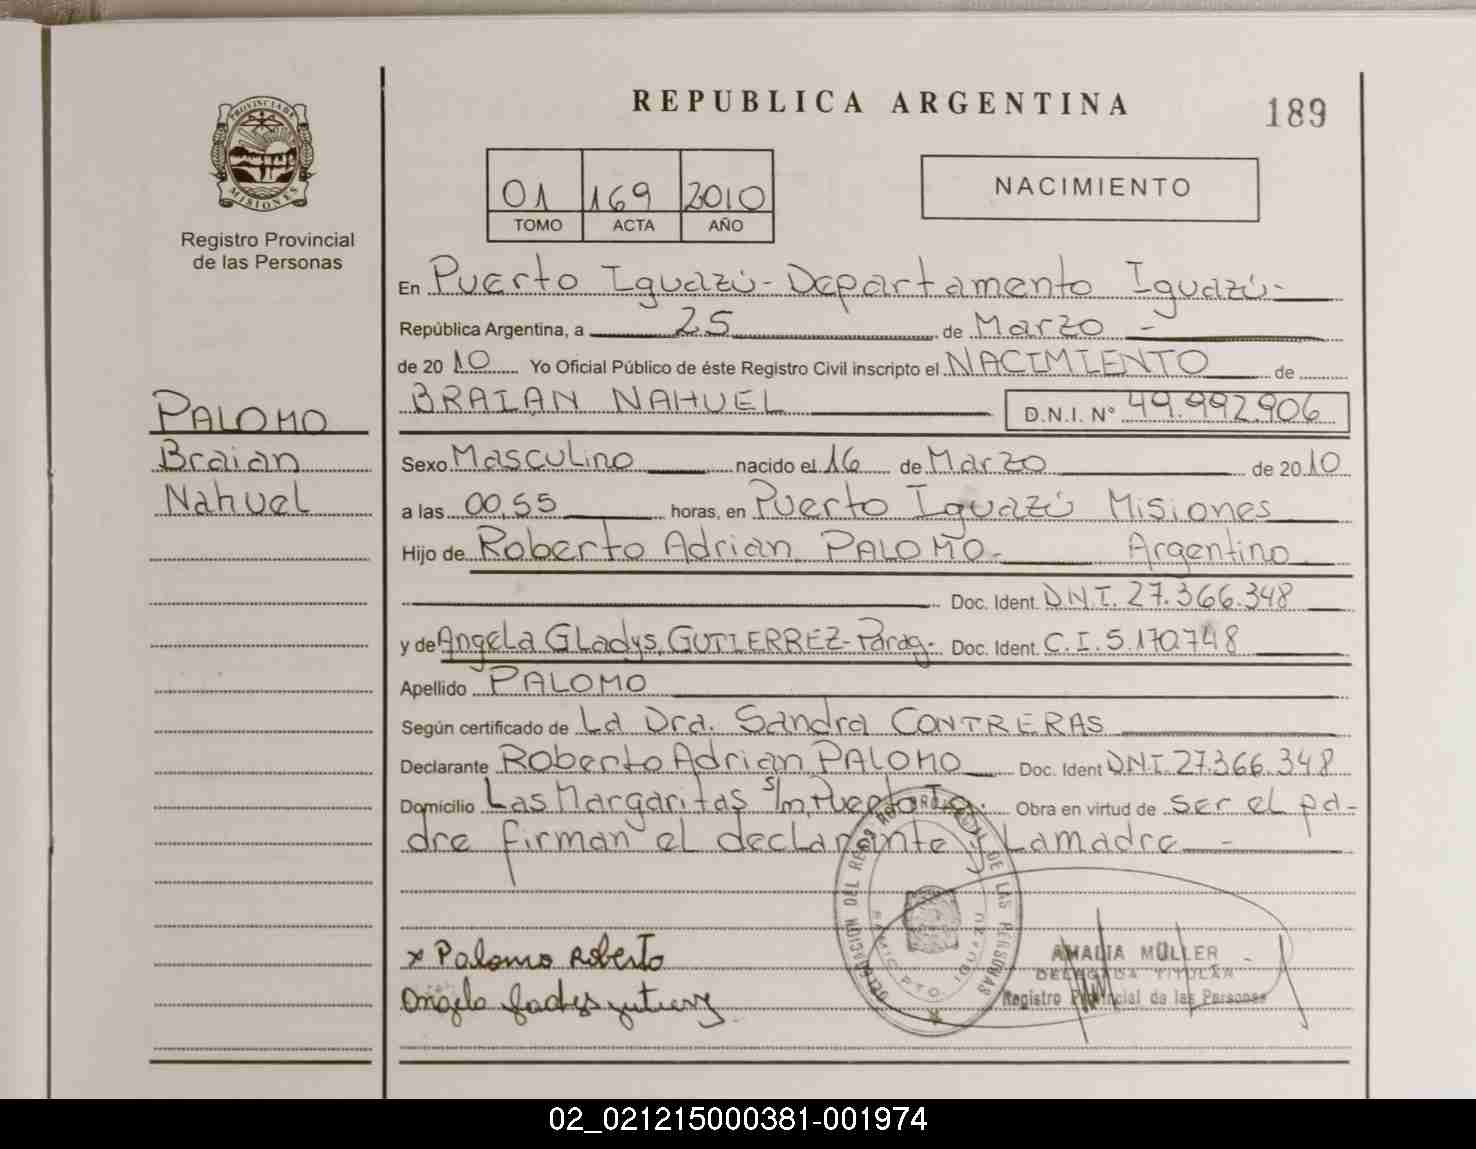 REPUBLICA ARGENTINA
189
PROVINCIA DE
MISIONES
Registro Provincial
de las Personas
01 169 2010
TOMO ACTA AÑO
NACIMIENTO
En Puerto Iguazú - Departamento Iguazú -
República Argentina, a 25 de Marzo -
de 2010 Yo Oficial Público de éste Registro Civil inscripto el NACIMIENTO de
BRAIAN NAHUEL D.N.I. N° 49.992.906
PALOMO
Braian
Nahuel
Sexo Masculino nacido el 16 de Marzo de 2010
a las 00,55 horas, en Puerto Iguazú Misiones
Hijo de Roberto Adrian PALOMO - Argentino
Doc. Ident. D.N.I. 27.366.348
y de Angela Gladys GUTIERREZ - Parag - Doc. Ident. C.I. 5.170.748
Apellido PALOMO
Según certificado de La Dra. Sandra CONTRERAS
Declarante Roberto Adrian PALOMO Doc. Ident DNI. 27.366.348
Domicilio Las Margaritas s/n, Puerto Ig. Obra en virtud de ser el pa-
dre firman el declarante y La madre -
x Palomo Roberto
Angela Gladys Gutierrez
DELEGACION DEL REGISTRO PROVINCIAL DE LAS PERSONAS
PTO. IGUAZU
AMALIA MÜLLER
DELEGADA TITULAR
Registro Provincial de las Personas
02_021215000381-001974